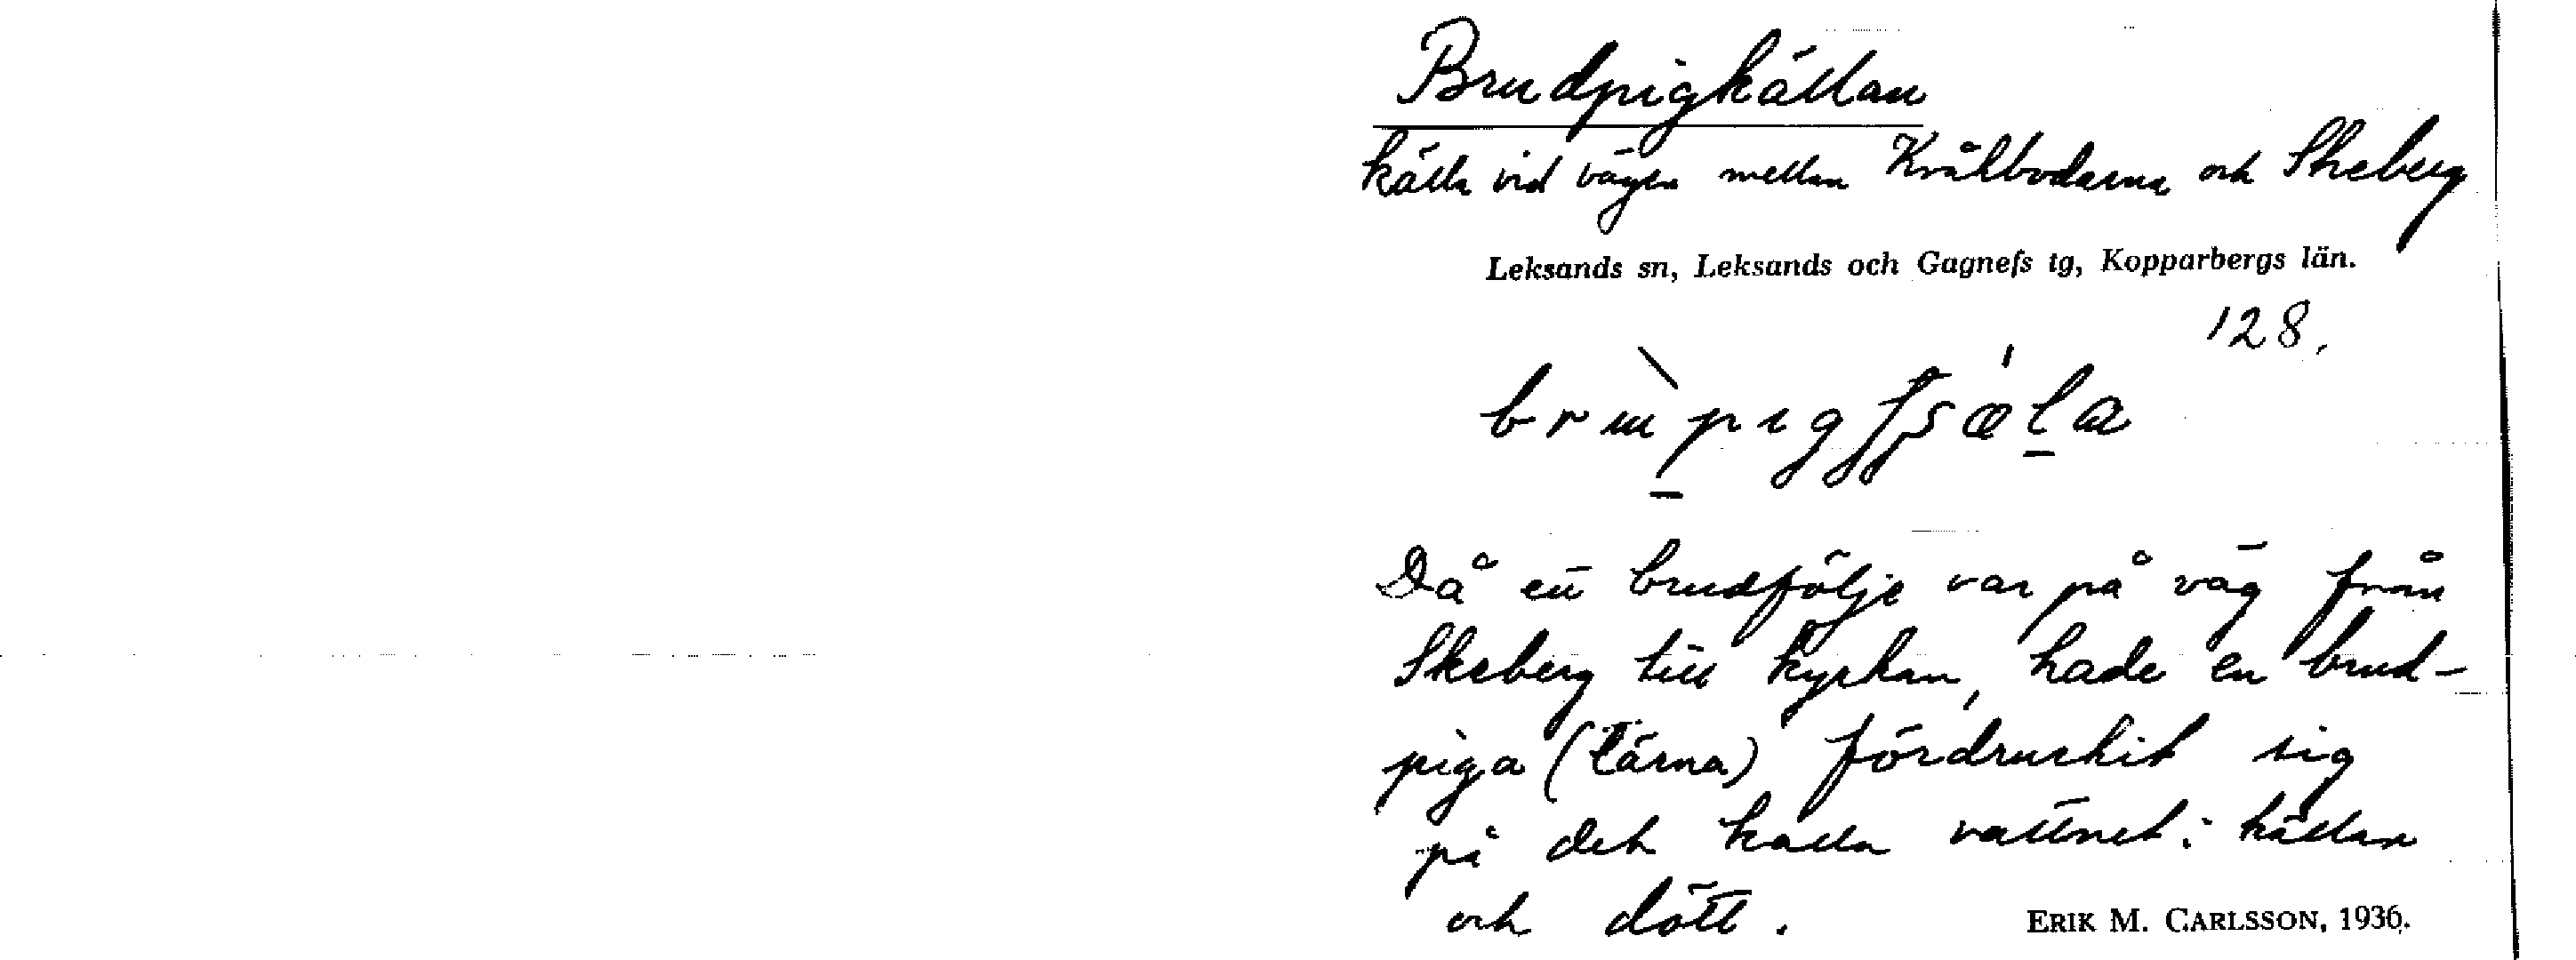 Brudpigkällan
källa vid vägen mellan Kvålbodarna och Skeberg
Leksands sn, Leksands och Gagnefs tg, Kopparbergs län.
128.
Då ett brudfölje var på väg från
Skeberg till kyrkan, hade en brud-
piga (tärna) fördruckit sig
på det kalla vattnet i källan
och dött.
ERIK M. CARLSSON, 1936.